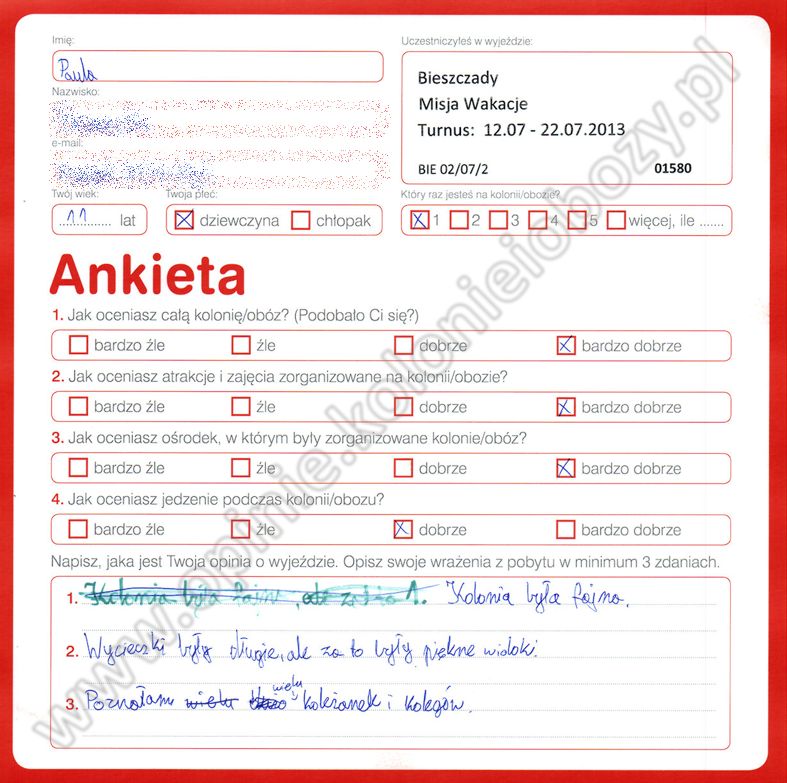 Imię:
Uczestniczyłeś w wyjeździe:
Paula
Bieszczady
Misja Wakacje
Turnus: 12.07 - 22.07.2013
BIE 02/07/2 01580
Nazwisko:
e-mail:
Twój wiek: Twoja płeć: Który raz jesteś na kolonii/obozie?
11 lat dziewczyna chłopak 1 2 3 4 5 więcej, ile .......
Ankieta
1. Jak oceniasz całą kolonię/obóz? (Podobało Ci się?)
bardzo źle źle dobrze bardzo dobrze
2. Jak oceniasz atrakcje i zajęcia zorganizowane na kolonii/obozie?
bardzo źle źle dobrze bardzo dobrze
3. Jak oceniasz ośrodek, w którym były zorganizowane kolonie/obóz?
bardzo źle źle dobrze bardzo dobrze
4. Jak oceniasz jedzenie podczas kolonii/obozu?
bardzo źle źle dobrze bardzo dobrze
Napisz, jaka jest Twoja opinia o wyjeździe. Opisz swoje wrażenia z pobytu w minimum 3 zdaniach.
1. Kolonia była fajna, ale za 1. Kolonia była fajna.
2. Wycieczki były długie, ale za to były piękne widoki.
3. Poznałam wielu wielu koleżanek i kolegów.
www.opinie.kolonieiobozy.pl